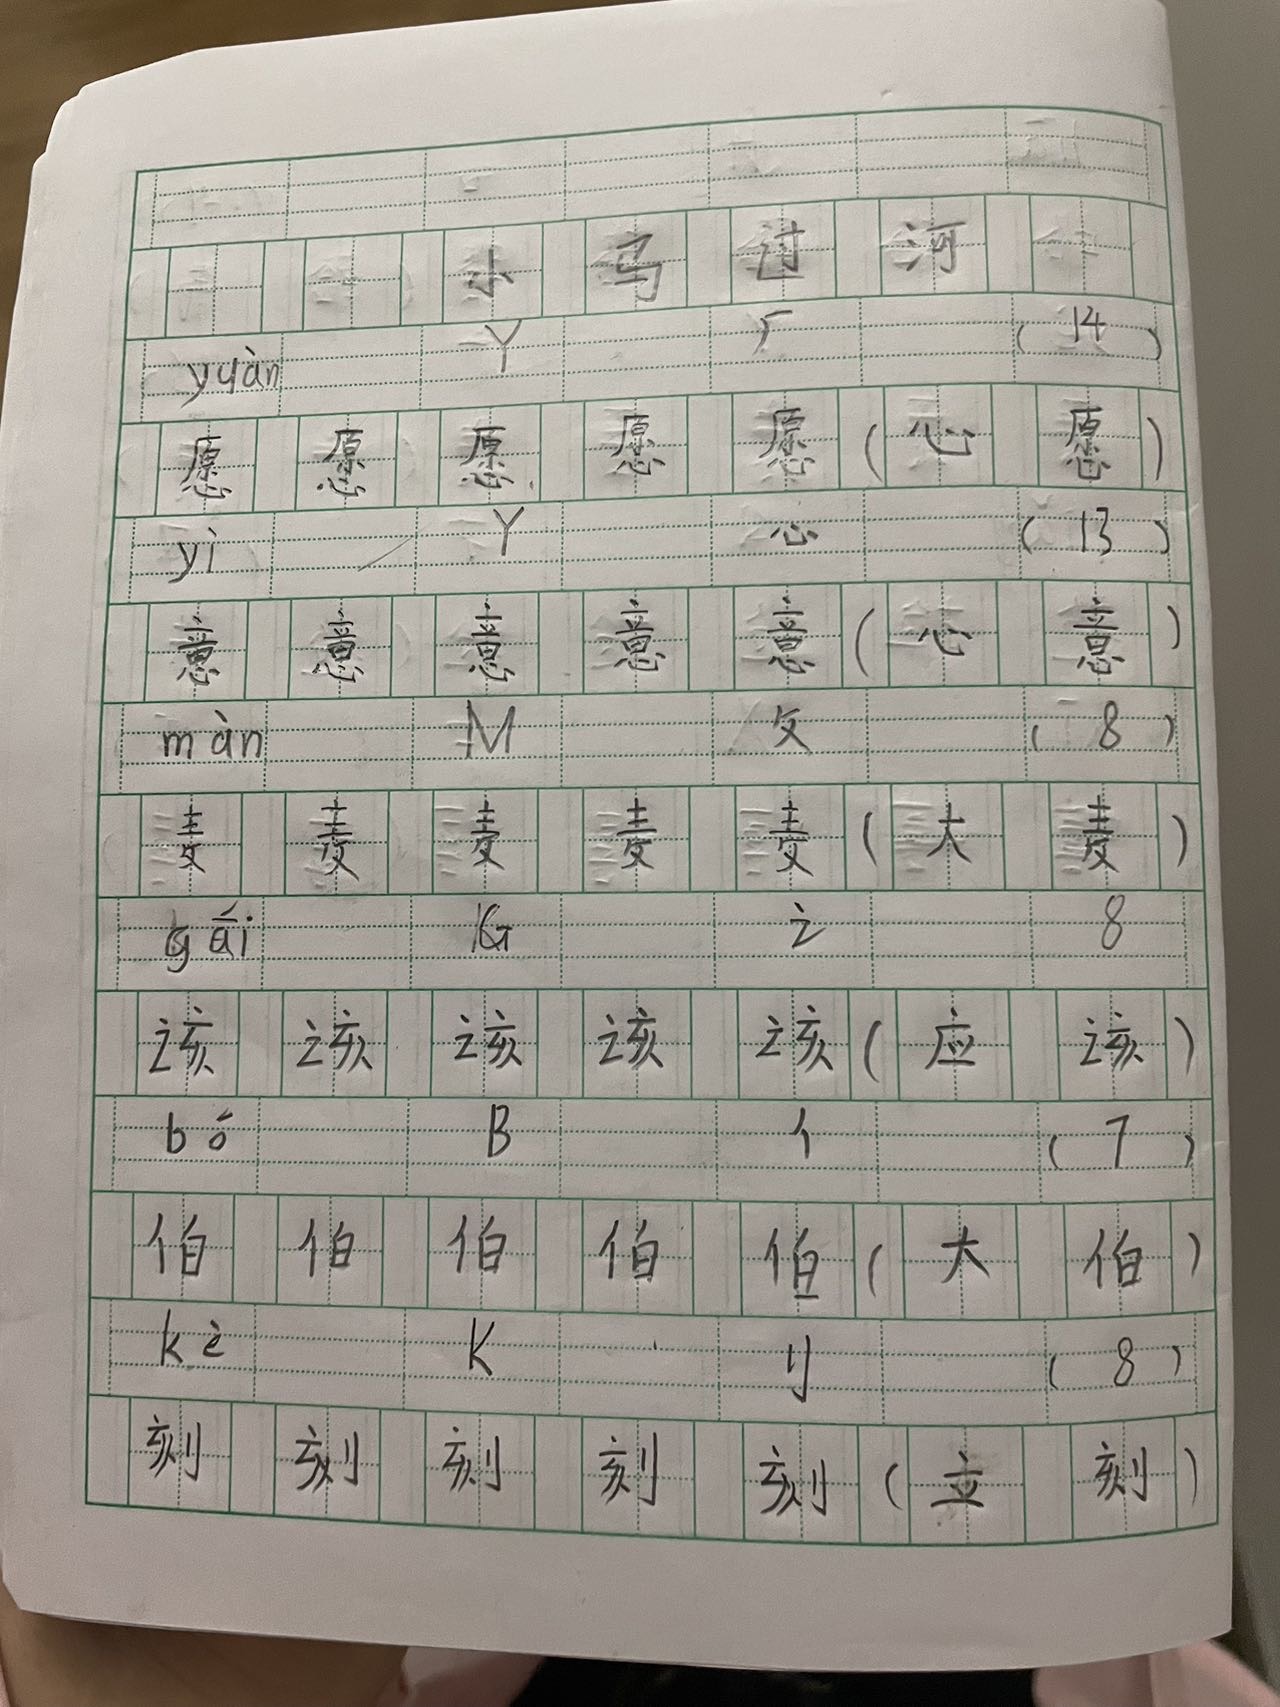 小马过河
yuàn Y 厂 (14)
愿 愿 愿 愿 愿 (心愿)
yì Y 心 (13)
意 意 意 意 意 (心意)
màn M 夂 (8)
麦 麦 麦 麦 麦 (大麦)
gāi G 讠 8
该 该 该 该 该 (应该)
bó B 亻 (7)
伯 伯 伯 伯 伯 (大伯)
kè K 刂 (8)
刻 刻 刻 刻 刻 (立刻)